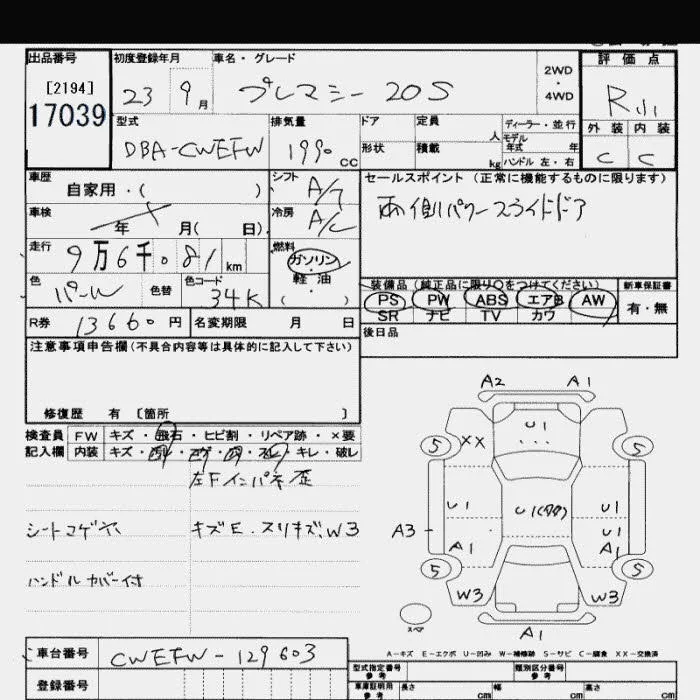 出品番号
[2194]
17039
初度登録年月
23 9月
車名・グレード
プレマシー 20S
2WD
・
4WD
評価点
R小
外装 内装
C C
型式
DBA-CWEFW
排気量
1990 cc
ドア
形状
定員
人
積載
kg
ディーラー・並行
モデル
年式 年
ハンドル 左・右
車歴
自家用・( )
シフト
A/T
セールスポイント (正常に機能するものに限ります)
両側パワースライドドア
車検
年 月( 日)
冷房
A/C
走行
9万6千081km
燃料
ガソリン
・
軽油
( )
色
パール
色替
色コード
34K
装備品 (純正品に限り○をつけてください)
PS PW ABS エアB AW
SR ナビ TV カワ
新車保証書
有・無
R券
13660円
名変期限 月 日
後日品
注意事項申告欄(不具合内容等は具体的に記入して下さい)
修復歴 有 [箇所 ]
検査員
記入欄
FW キズ・飛石・ヒビ割・リペア跡・×要
内装 キズ・汚レ・コゲ・穴・スレ・キレ・破レ
左Fインパネ歪
シートコゲ穴
キズE.スリキズ、W3
ハンドルカバー付
A2 A1
U1
5 XX 5
U1 U1(タタク) U1
A3 U1
A1 A1
5 5
W3 W3
スペア
A1
A-キズ E-エクボ U-凹み W-補修跡 S-サビ C-腐食 XX-交換済
車台番号
CWEFW-129603
登録番号
型式指定番号
参考
類別区分番号
参考
車庫証明用
参考
長さ cm
幅 cm
高さ cm